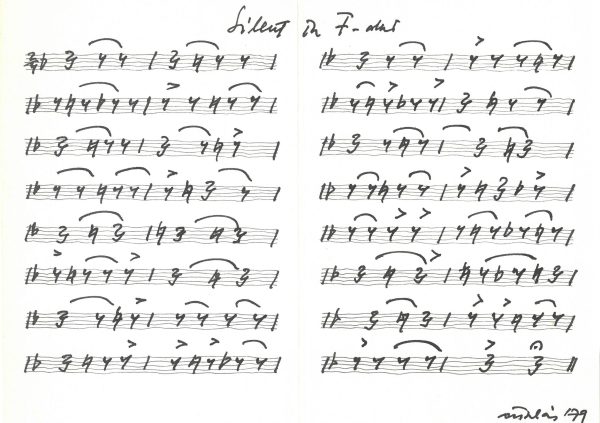 Silent in F-dur
'79